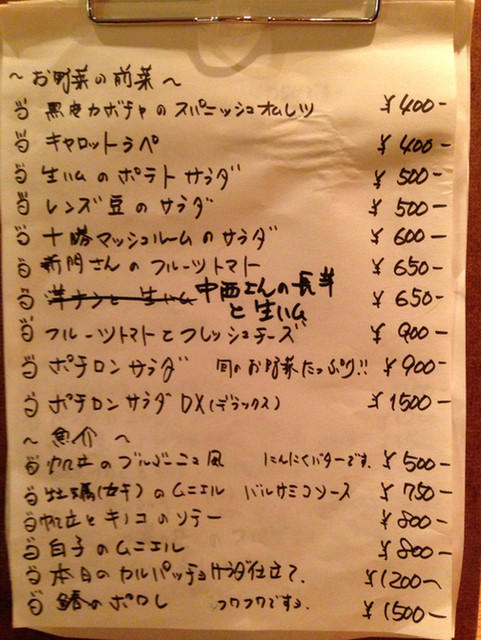 〜お野菜の前菜〜
黒皮カボチャのスパニッシュオムレツ ¥400-
キャロットラペ ¥400-
生ハムのポテトサラダ ¥500-
レンズ豆のサラダ ¥500-
十勝マッシュルームのサラダ ¥600-
新門さんのフルーツトマト ¥650-
洋ナシと生ハム 中西さんの長芋と生ハム ¥650-
フルーツトマトとフレッシュチーズ ¥900-
ポテロンサラダ 旬のお野菜たっぷり!! ¥900-
ポテロンサラダDX(デラックス) ¥1500-
〜魚介〜
帆立のブルゴーニュ風 にんにくバターです. ¥500-
牡蠣のムニエル バルサミコソース ¥750-
帆立とキノコのソテー ¥800-
白子のムニエル ¥800-
本日のカルパッチョサラダ仕立て. ¥1200-
のポワレ フワフワですよ. ¥1500-